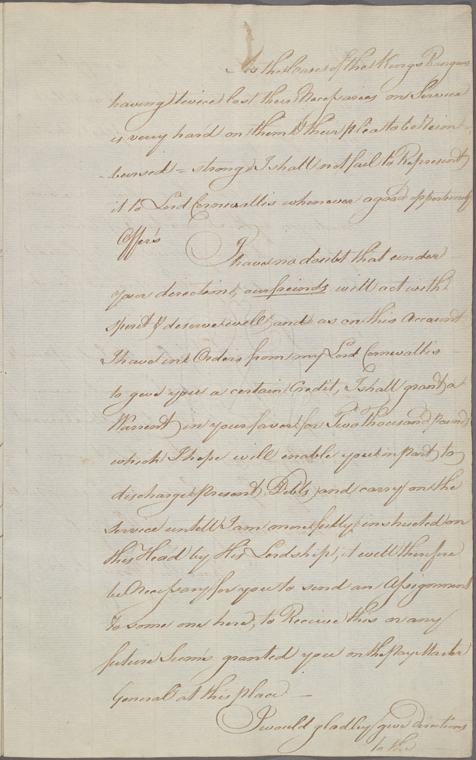 As the Cases of the Kings Rangers
having twice lost their Necessaries on Service
is verry hard on them & their plea to be Reim-
bursed = strong I shall not fail to Represent
it to Lord Cornwallis whenever a good oppertunity
Offers
I have no doubt that under
your direction, our freinds will act with
spirit & deserve well, and as on this Account
I have in Orders from my Lord Cornwallis
to give you a certain Credit, I shall grant a
Warrent in your favor for Two Thousand Pounds
which I hope will enable you in part to
discharge present Debts and carry on the
Service untill I am more fully instructed on
this Head by His Lordship, it will therefore
be Necessary for you to send an Assignment
to some one here, to Receive this or any
future Sum's granted you on the Pay Master
General at this place —
I would gladley give directions
to the